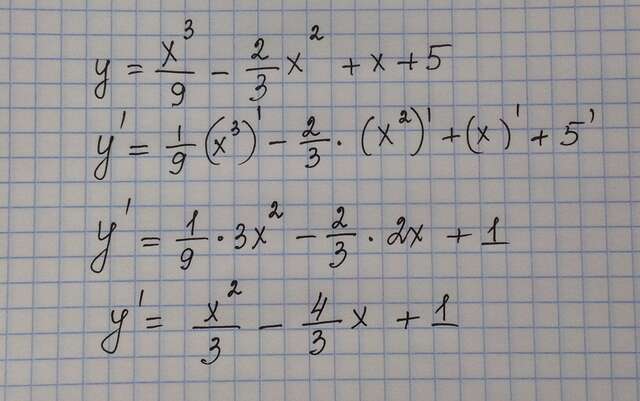 y = x³/9 − 2/3 x² + x + 5
y' = 1/9 (x³)' − 2/3 · (x²)' + (x)' + 5'
y' = 1/9 · 3x² − 2/3 · 2x + 1
y' = x²/3 − 4/3 x + 1